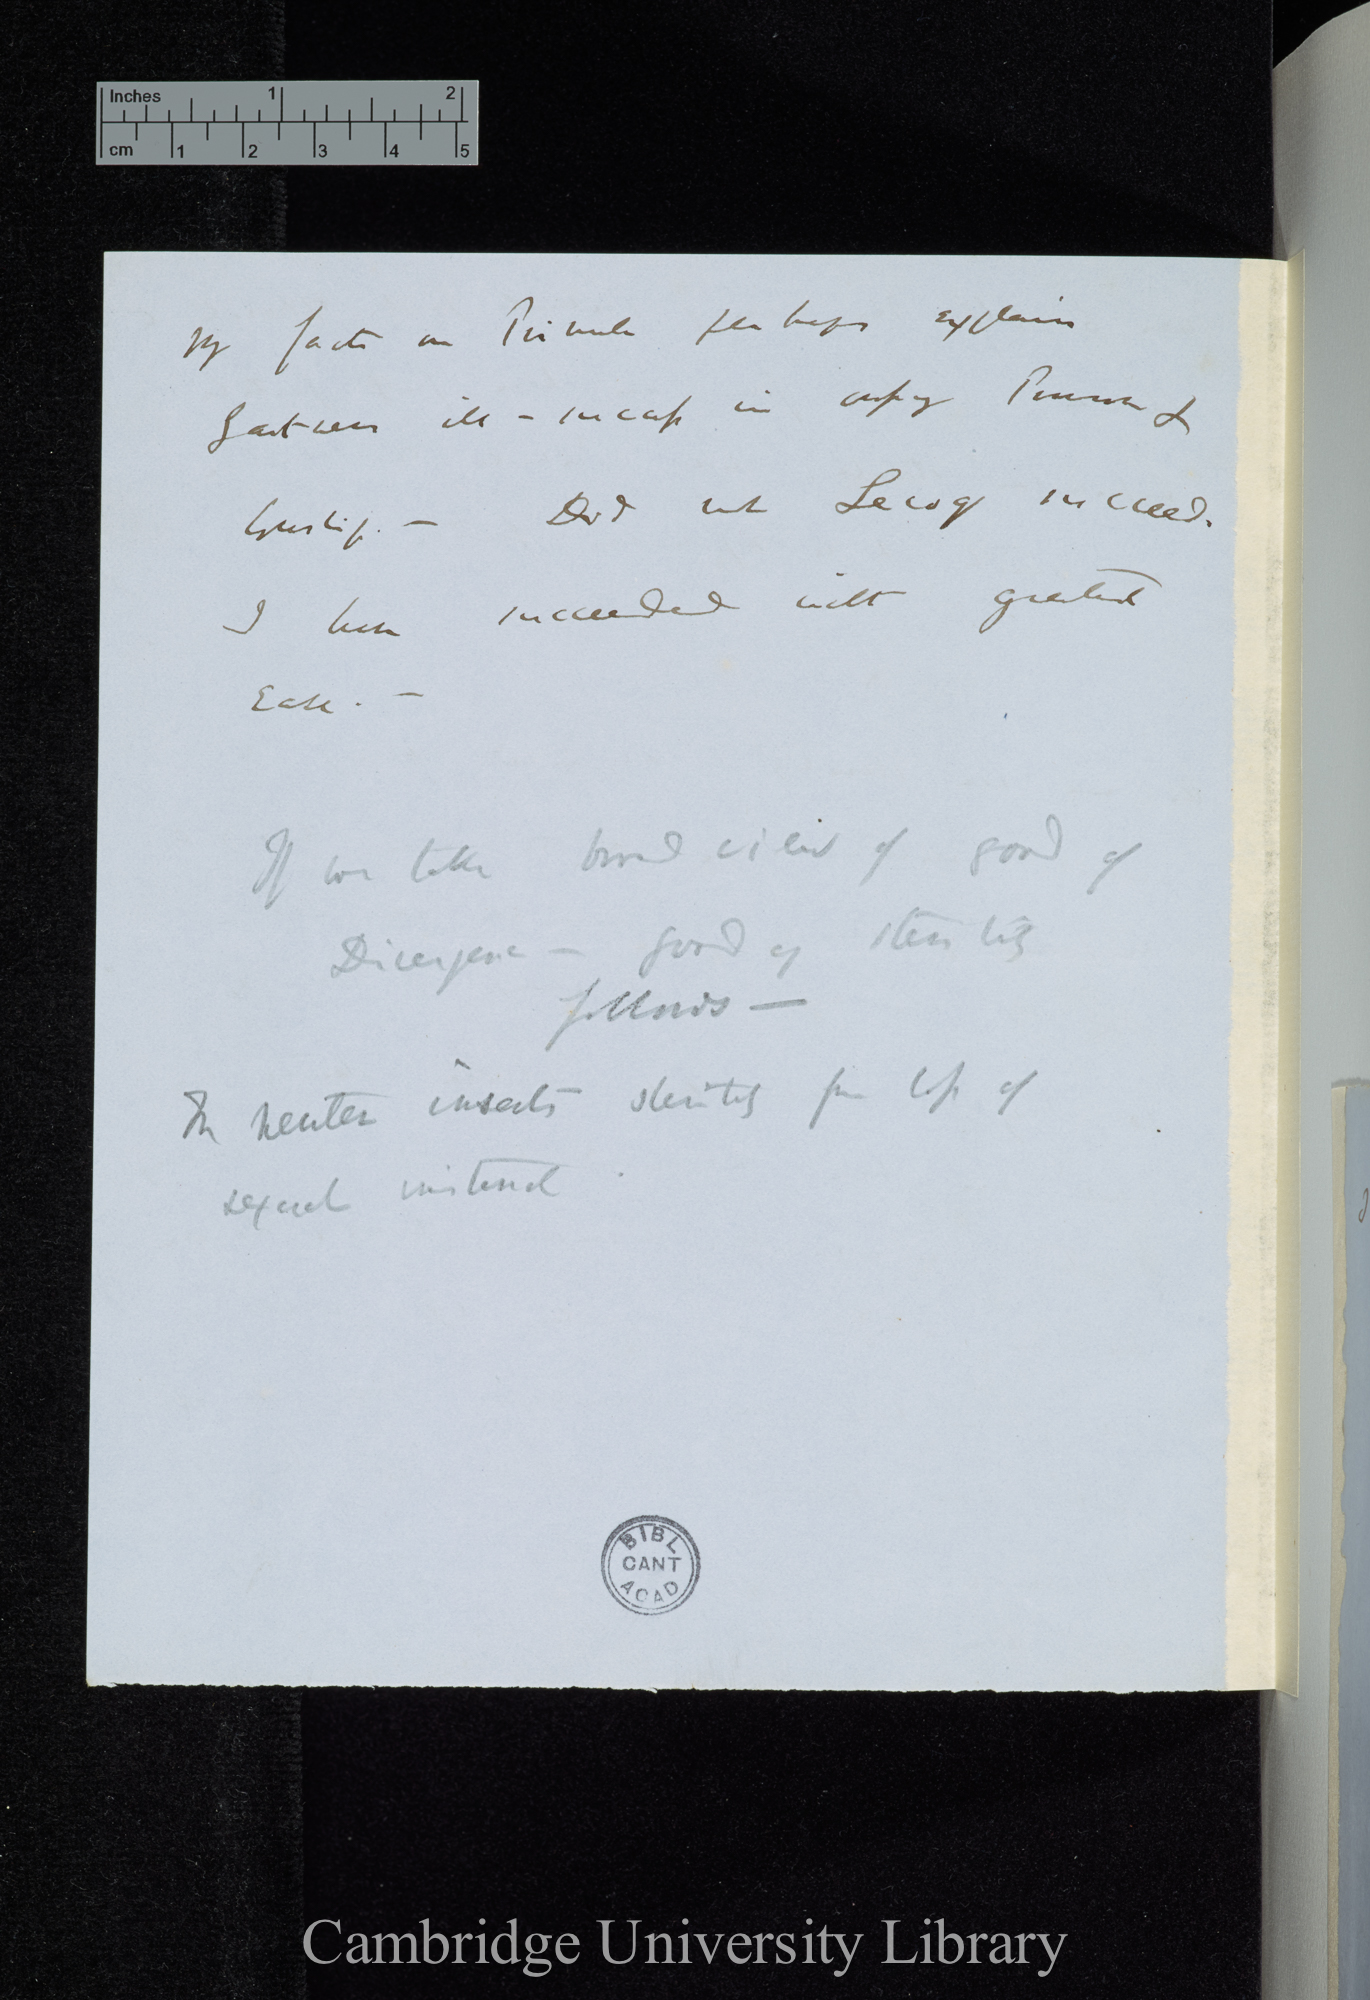 Inches 1 2
cm 1 2 3 4 5
My facts on Primula perhaps explain
Gærtners ill-success in crossing Primrose &
Cowslip. — Did not Lecoq succeed.
I have succeeded with greatest
ease. —
If we take broad view of good of
Divergence — good of sterility
follows —
In neuter insects sterility from loss of
sexual
BIBL
CANT
ACAD
Cambridge University Library